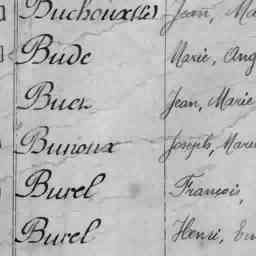 Duchoux (le) Jean, Ma
Bude Marie, Ang
Buen Jean, Marie
Bunoux Joseph, Marie
Burel François,
Burel Henri, Em